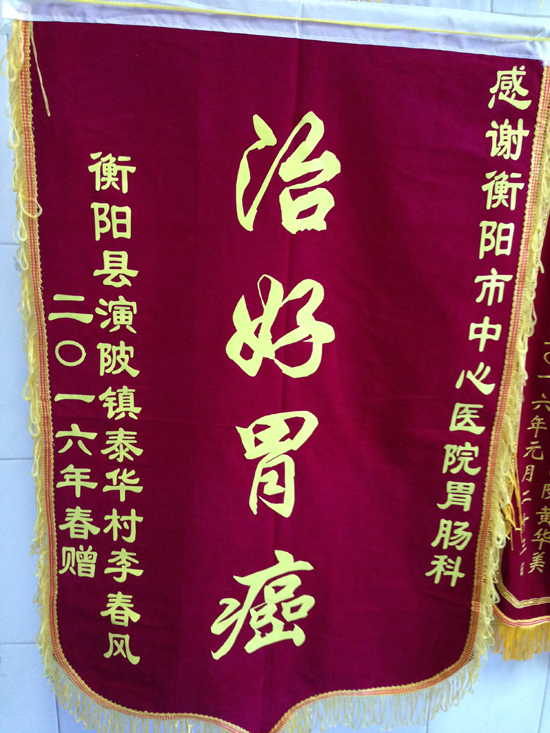 感谢衡阳市中心医院胃肠科
治好胃癌
衡阳县演陂镇泰华村李春风
二〇一六年春赠
六年元月二十
黄华美